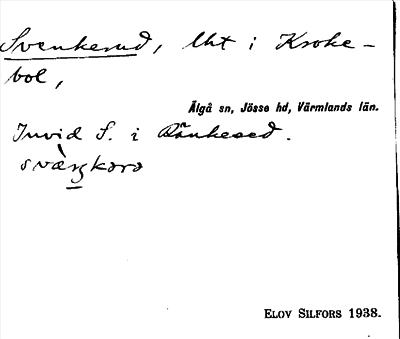 Svenkerud, lht i Kroke-
bol,
Älgå sn, Jösse hd, Värmlands län.
Invid S. i Rånkesed.
ELOV SILFORS 1938.